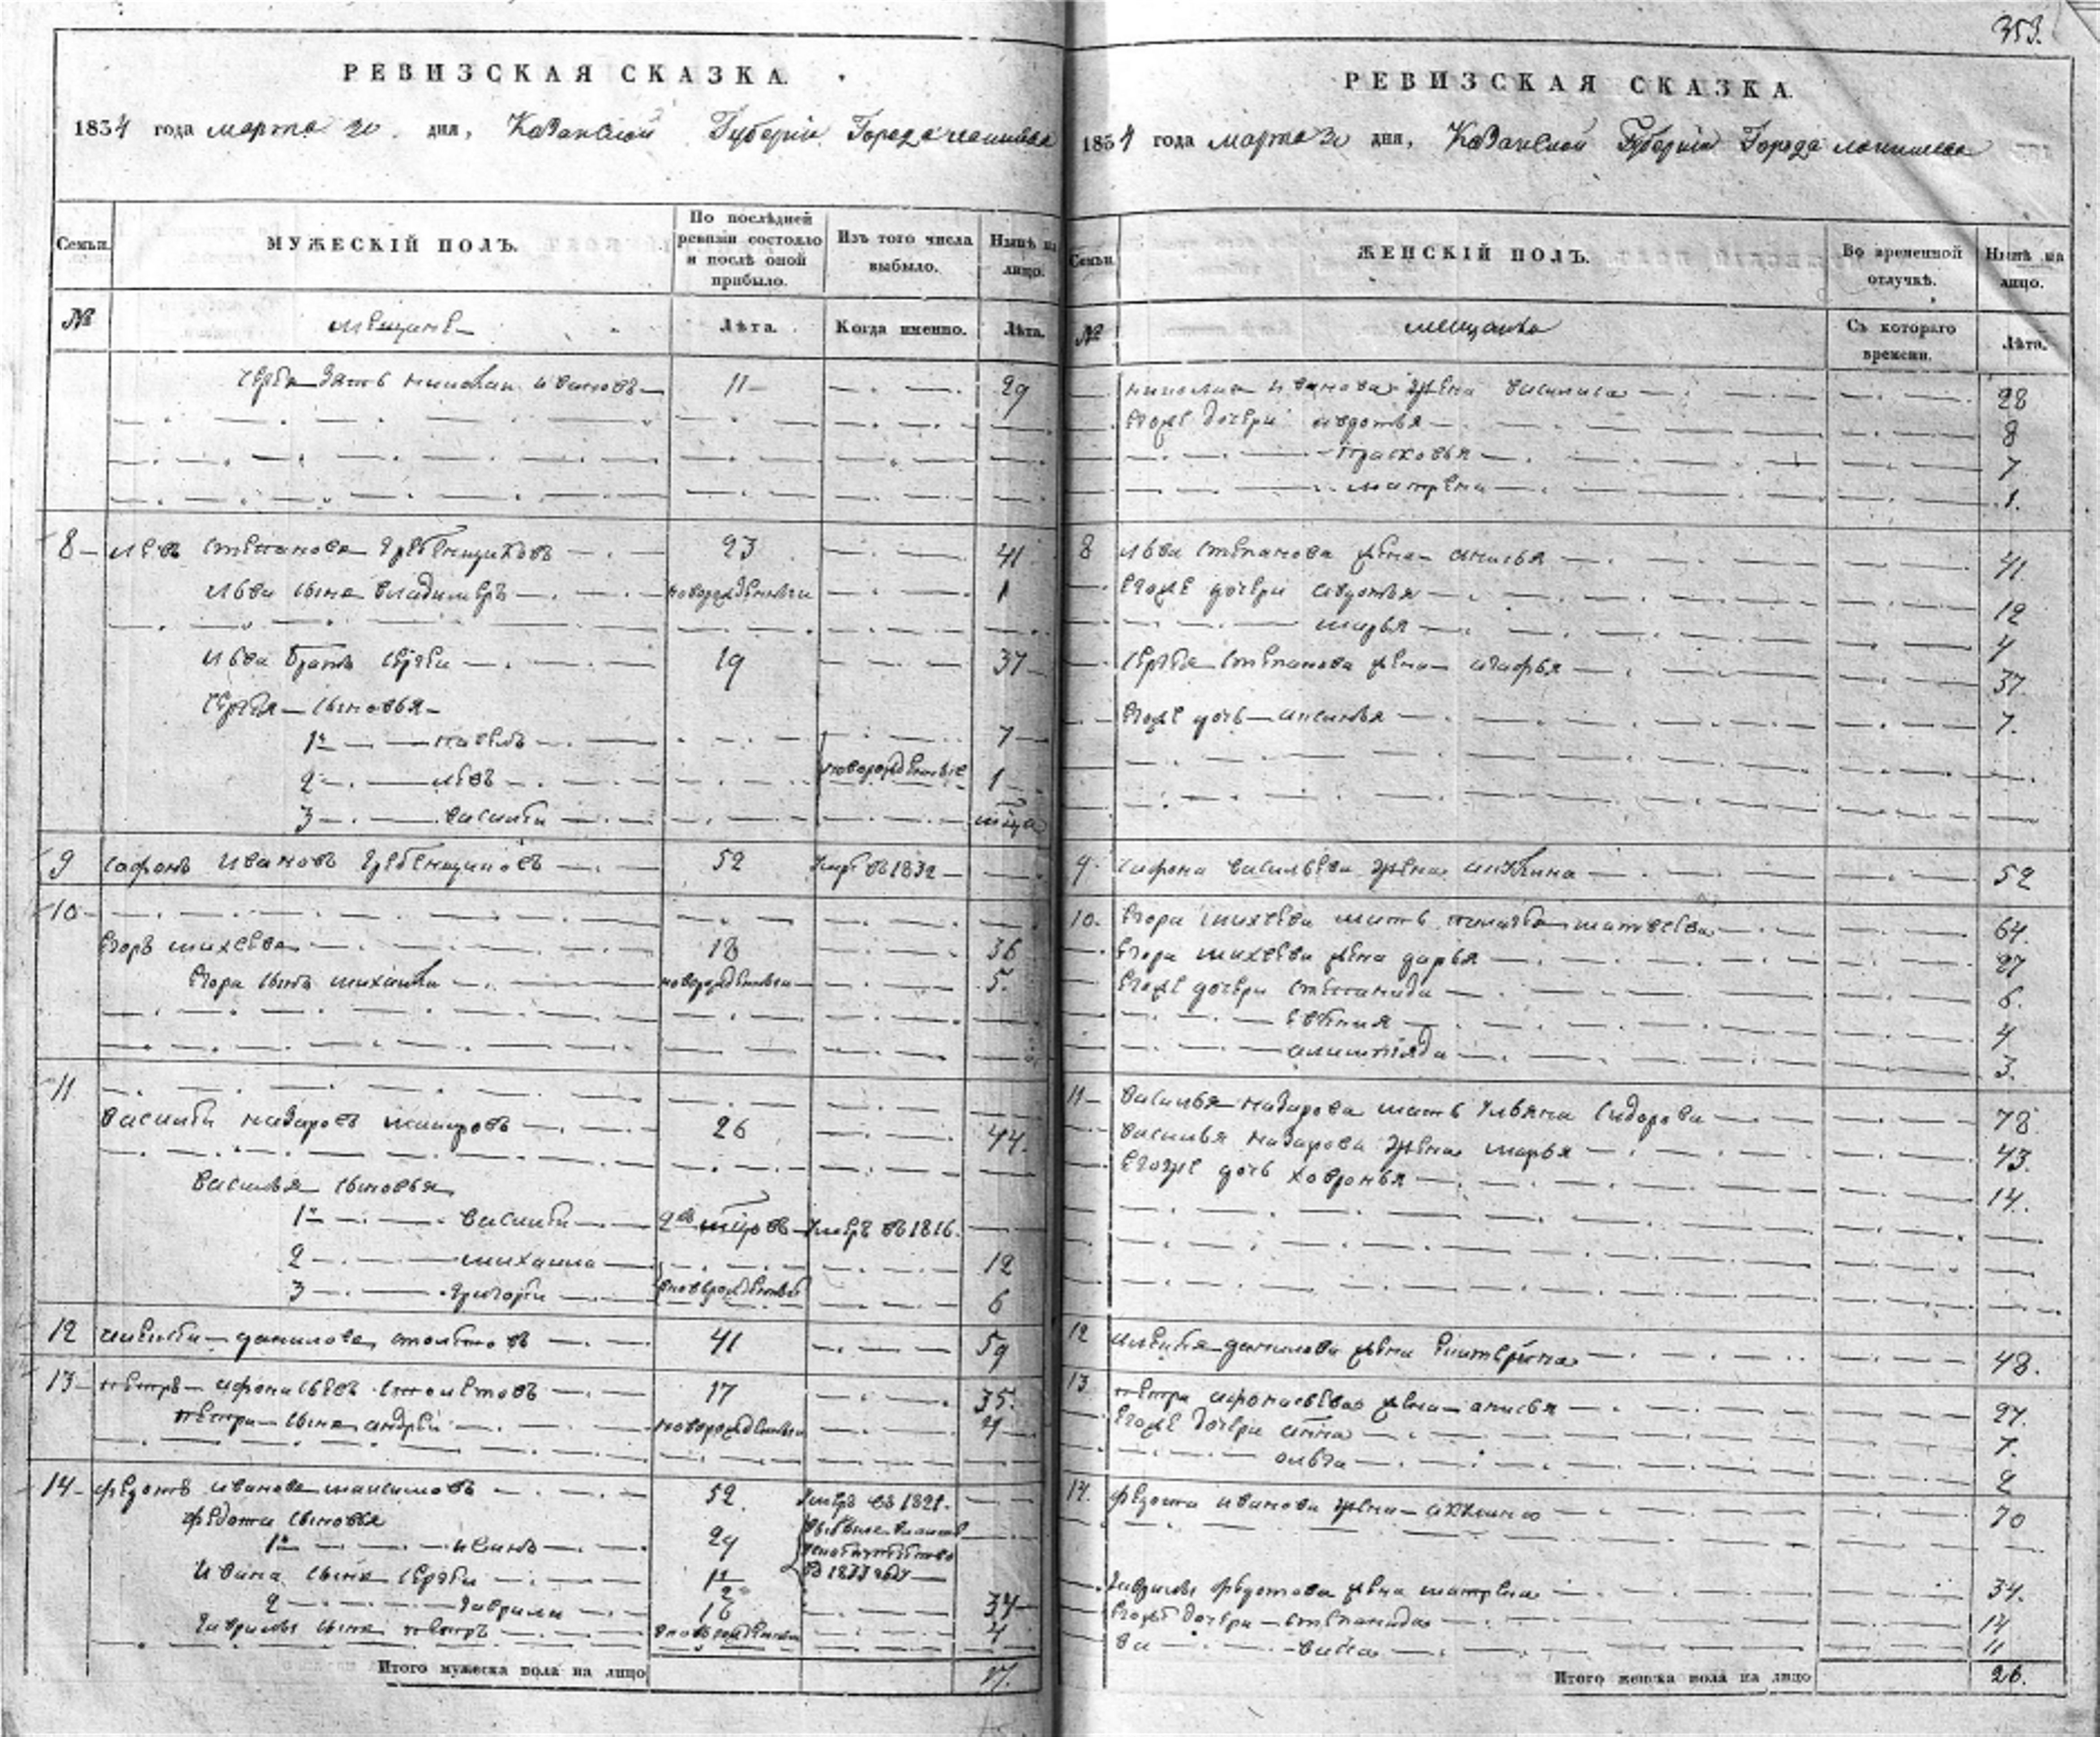 353.
РЕВИЗСКАЯ СКАЗКА.
1834 года марта 20 дня, Казанской Губернiи Города
Семьи. МУЖЕСКIЙ ПОЛЪ. По послѣдней ревизiи состояло и послѣ оной прибыло. Изъ того числа выбыло. Нынѣ на лицо.
№ мещане Лѣта. Когда именно. Лѣта.
зять николаи ивановъ 11 29
8 левъ степановъ Гребенщиковъ 23 41
Льва сынъ владимеръ новорожденныи 1
Льва братъ сергѣи 19 37
Сергѣя сыновья
1й павелъ 7
2 левъ новорожденные 1
3 василеи
9 сафонъ ивановъ Гребенщиковъ 52 умре въ 1832
10
Егоръ михеевъ 18 36
Егора сынъ михаила новорожденныи 5.
11
василеи назаровъ 26 44.
василья сыновья
1й василеи 2 умеръ въ 1816.
2 михаила 12
3 григореи новорожденные 6
12 даниловъ столетовъ 41 59
13 петръ афонасьевъ столетовъ 17 35.
петра сынъ андреи новорожденныи 4
14 федотъ ивановъ максимовъ 52. умеръ въ 1821.
федота сыновья
1й иванъ 29
Ивана сынъ сергѣи въ 1833 году
2 гаврила 16 34
гаврилы сынъ петръ 4
Итого мужеска пола на лицо 17.
РЕВИЗСКАЯ СКАЗКА.
1834 года марта 20 дня, Казанской Губернiи Города
Семьи. ЖЕНСКIЙ ПОЛЪ. Во временной отлучкѣ. Нынѣ на лицо.
№ мещанка Съ котораго времени. Лѣта.
николая иванова жена василиса 28
Егоже дочери авдотья 8
прасковья 7
матрена 1.
8 Льва степанова жена анисья 41.
Егоже дочери авдотья 12
марья 4
Сергѣя степанова жена агафья 37.
Егоже дочь аксинья 7.
9. сафона васильева жена акулина 52
10. Егора михеева мать матвеева 64.
Егора михеева жена дарья 27
Егоже дочери степанида 6.
Евгения 4
алимпiяда 3.
11 василья назарова мать ульяна сидорова 78.
василья назарова жена марья 43.
Егоже дочь ховронья 14.
12 данилова жена екатерина 48.
13 петра афонасьева жена анисья 27.
Егоже дочери анна 7.
ольга 2
14. федота иванова жена акулина 70
гаврилы федотова жена матрена 34.
Егоже дочери степанида 14
11
Итого женска пола на лицо 26.